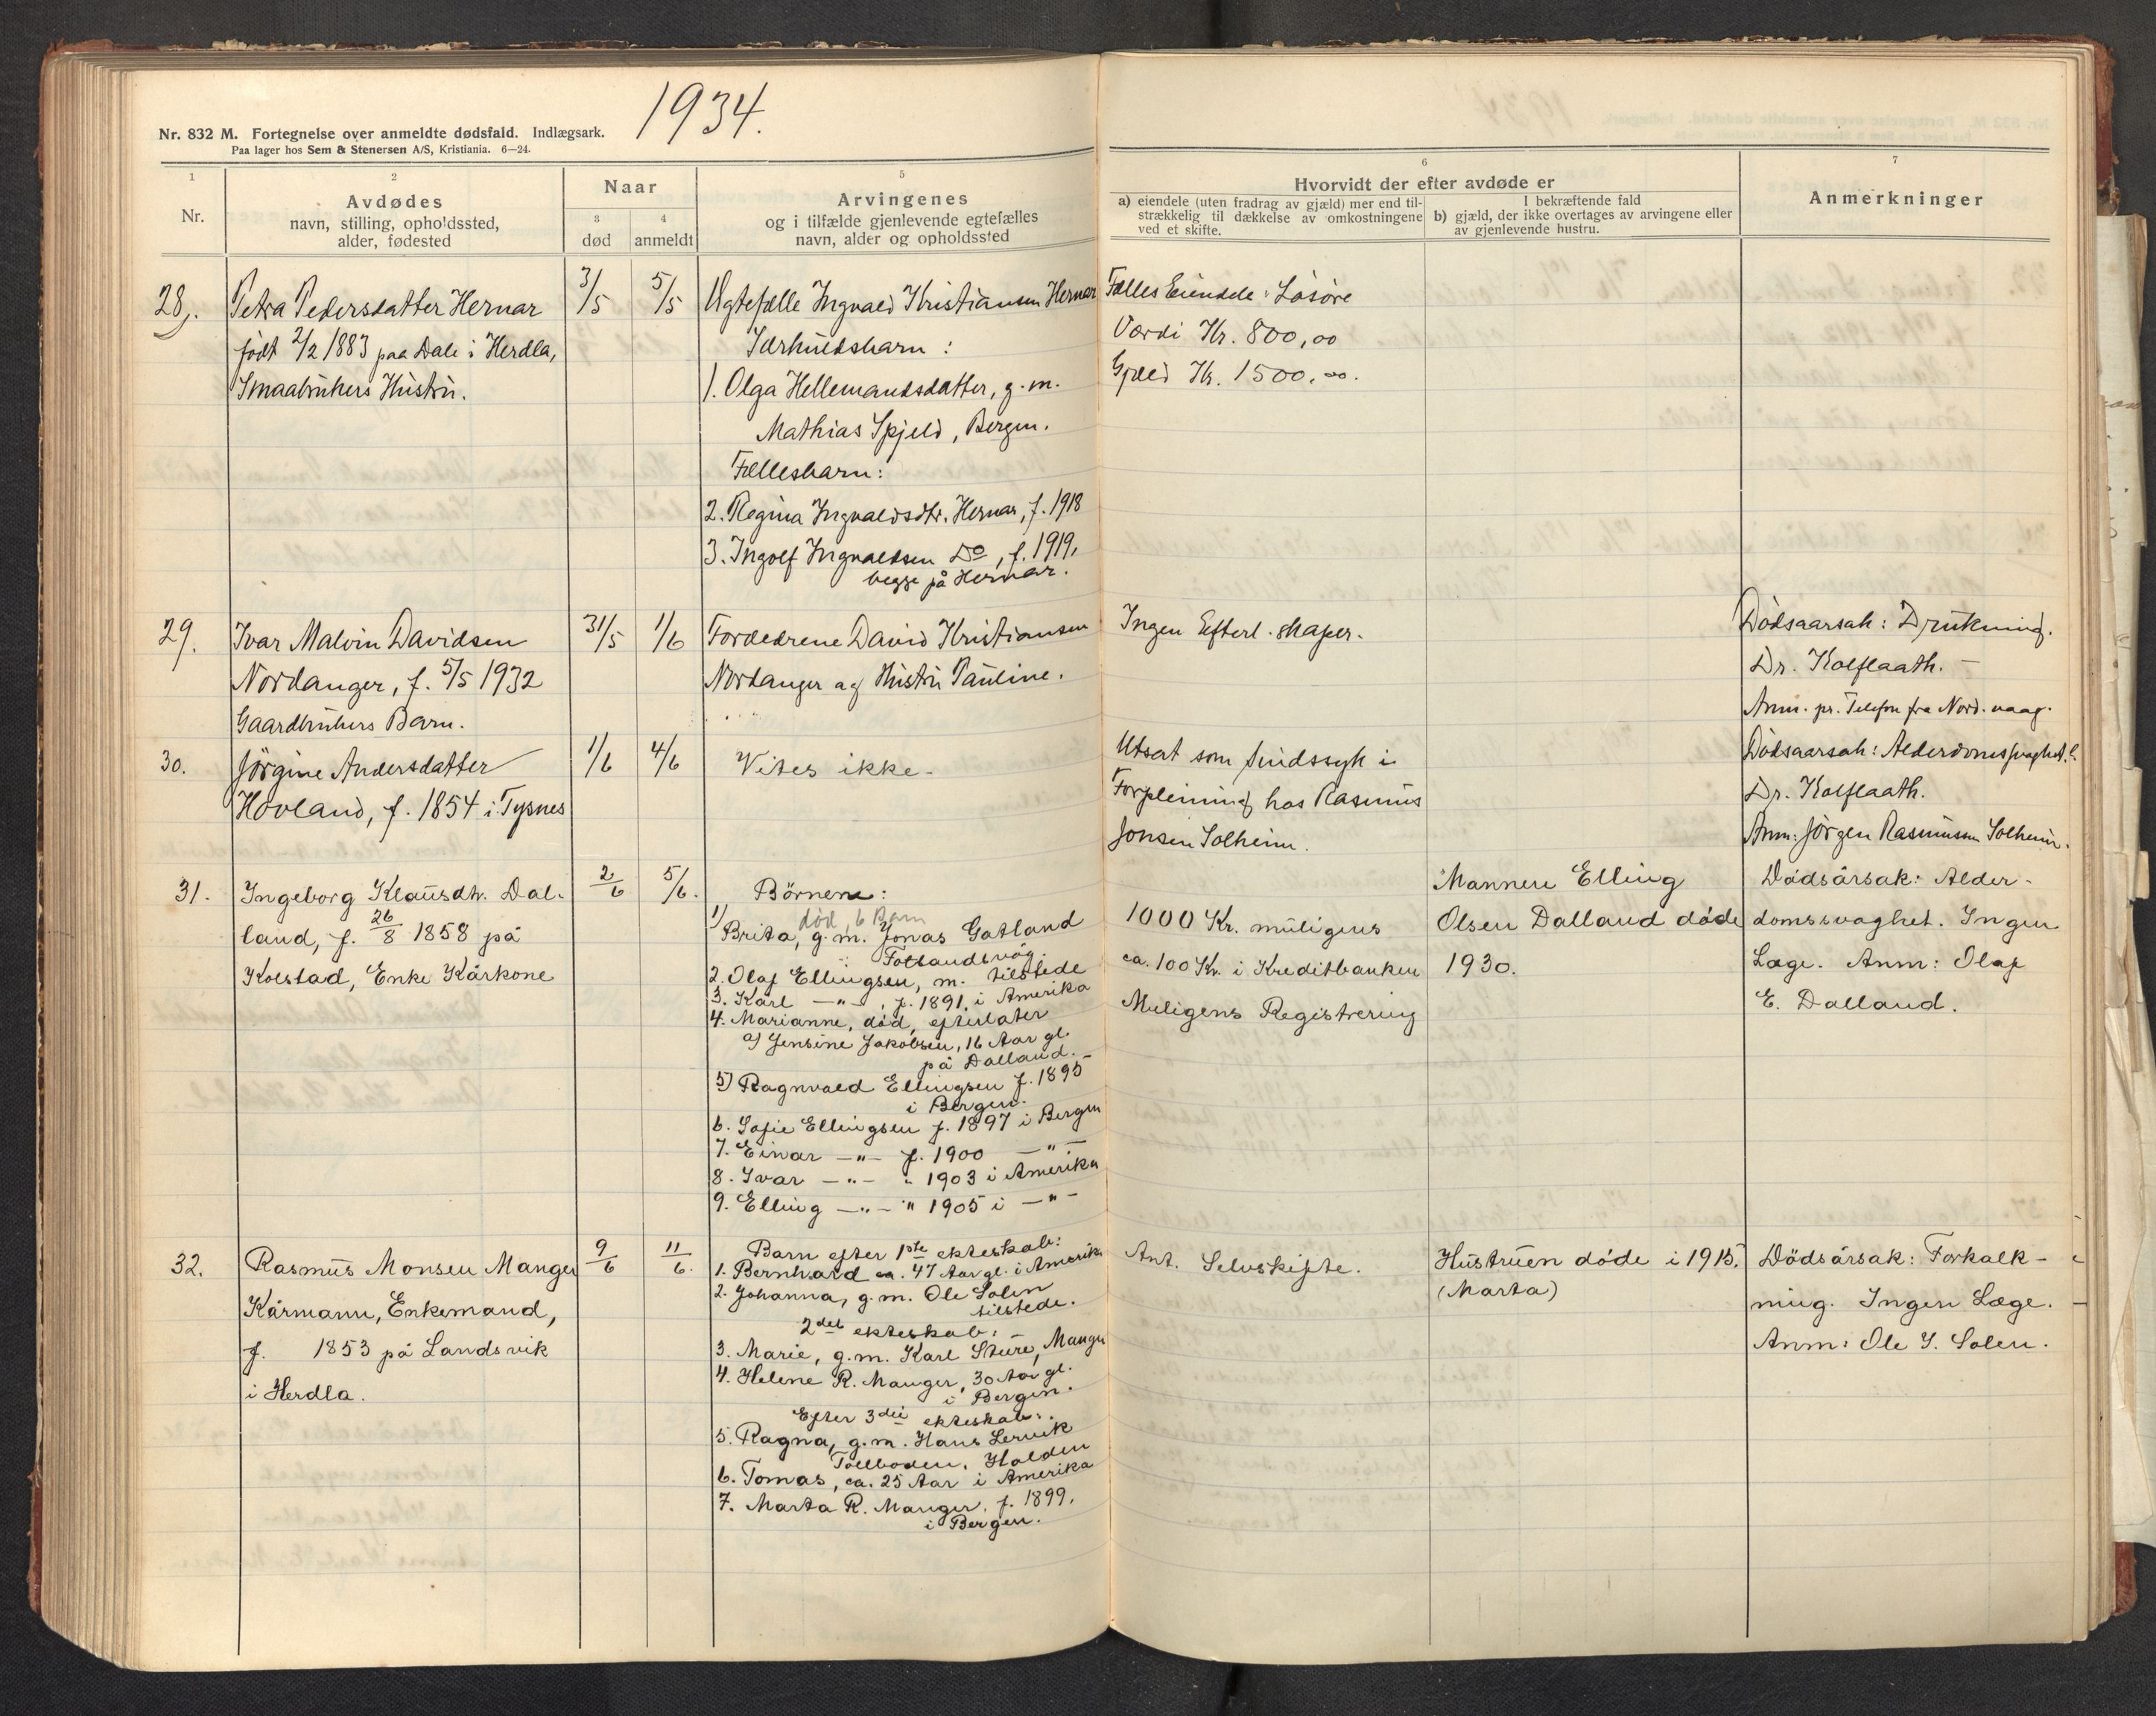 1934.
Nr. 832 M. Fortegnelse over anmeldte dødsfald. Indlægsark.
Paa lager hos Sem & Stenersen A/S, Kristiania. 6—24.
1
Nr.
2
Avdødes
navn, stilling, opholdssted,
alder, fødested
Naar
3
død
4
anmeldt
5
Arvingenes
og i tilfælde gjenlevende egtefælles
navn, alder og opholdssted
6
Hvorvidt der efter avdøde er
a) eiendele (uten fradrag av gjæld) mer end til-
strækkelig til dækkelse av omkostningene
ved et skifte.
I bekræftende fald
b) gjæld, der ikke overtages av arvingene eller
av gjenlevende hustru.
7
Anmerkninger
28.
Petra Pedersdatter Hernar
født 2/2 1883 paa Dale i Herdla,
Smaabrukers Hustru.
3/5
5/5
Ægtefælle Ingvald Kristiansen Hernar
Særkuldsbarn :
1. Olga Hellemandsdatter, g. m.
Mathias Spjeld, Bergen.
Fællesbarn :
2. Regina Ingvaldsdtr. Hernar, f. 1918
3. Ingolf Ingvaldsen Do, f. 1919,
begge på Hernar.
Fælles Eiendele : Løsøre
Værdi Kr. 800,00
Gjæld Kr. 1500,00.
29.
Ivar Malvin Davidsen
Nordanger, f. 5/5 1932
Gaardbrukers Barn.
31/5
1/6
Foreldrene David Kristiansen
Nordanger og Hustru Pauline.
Ingen Efterl.skaper.
Dødsaarsak : Drukning.
Dr. Kolflaath. —
Anm. pr. Telefon fra Nord.vaag.
30.
Jörgine Andersdatter
Hovland, f. 1854 i Tysnes
1/6
4/6
Vites ikke -
Utsat som sindssyk i
Forpleining hos Rasmus
Jonsen Solheim.
Dødsaarsak : Alderdomssvaghet.
Dr. Kolflaath.
Anm: Jörgen Rasmussen Solheim.
31.
Ingeborg Klausdtr. Dal-
land, f. 26/8 1858 på
Kolstad, Enke Kårkone
2/6
5/6.
Börnene :
død, 6 Barn
1) Brita, g. m. Jonas Gatland
Fotlandsvåg.
2. Olaf Ellingsen, m. tilstede
3. Karl —"— , f. 1891, i Amerika
4. Marianne, död, efterlater
a) Jensine Jakobsen, 16 Aar gl.
på Dalland.
5) Ragnvald Ellingsen f. 1895
i Bergen.
6. Sofie Ellingsen f. 1897 i Bergen
7. Einar —"— f. 1900 —"—
8. Ivar —"— " 1903 i Amerika
9. Elling —"— " 1905 i —"—
1000 Kr. muligens
ca. 100 Kr. i Kreditbanken
Muligens Registrering
Mannen Elling
Olsen Dalland døde
1930.
Dødsårsak : Alder-
domssvaghet. Ingen
Læge. Anm : Olaf
E. Dalland.
32.
Rasmus Monsen Manger
Kårmann, Enkemand,
f. 1853 på Landsvik
i Herdla.
9/6
11/6.
Barn efter 1ste ekteskab :
1. Bernhard ca. 47 Aar gl. i Amerika
2. Johanna, g. m. Ole Solen
tilstede.
2det ekteskab : —
3. Marie, g. m. Karl Sture, Manger
4. Helene R. Manger, 30 Aar gl.
i Bergen.
Efter 3die ekteskab :
5. Ragna, g. m. Hans Lervik
Tollboden, Halden
6. Tomas, ca. 25 Aar i Amerika
7. Marta R. Manger, f. 1899.
i Bergen.
Ant. Selvskifte.
Hustruen døde i 1915.
(Marta)
Dödsårsak : Forkalk-
ning. Ingen Læge.
Anm : Ole I. Solen.